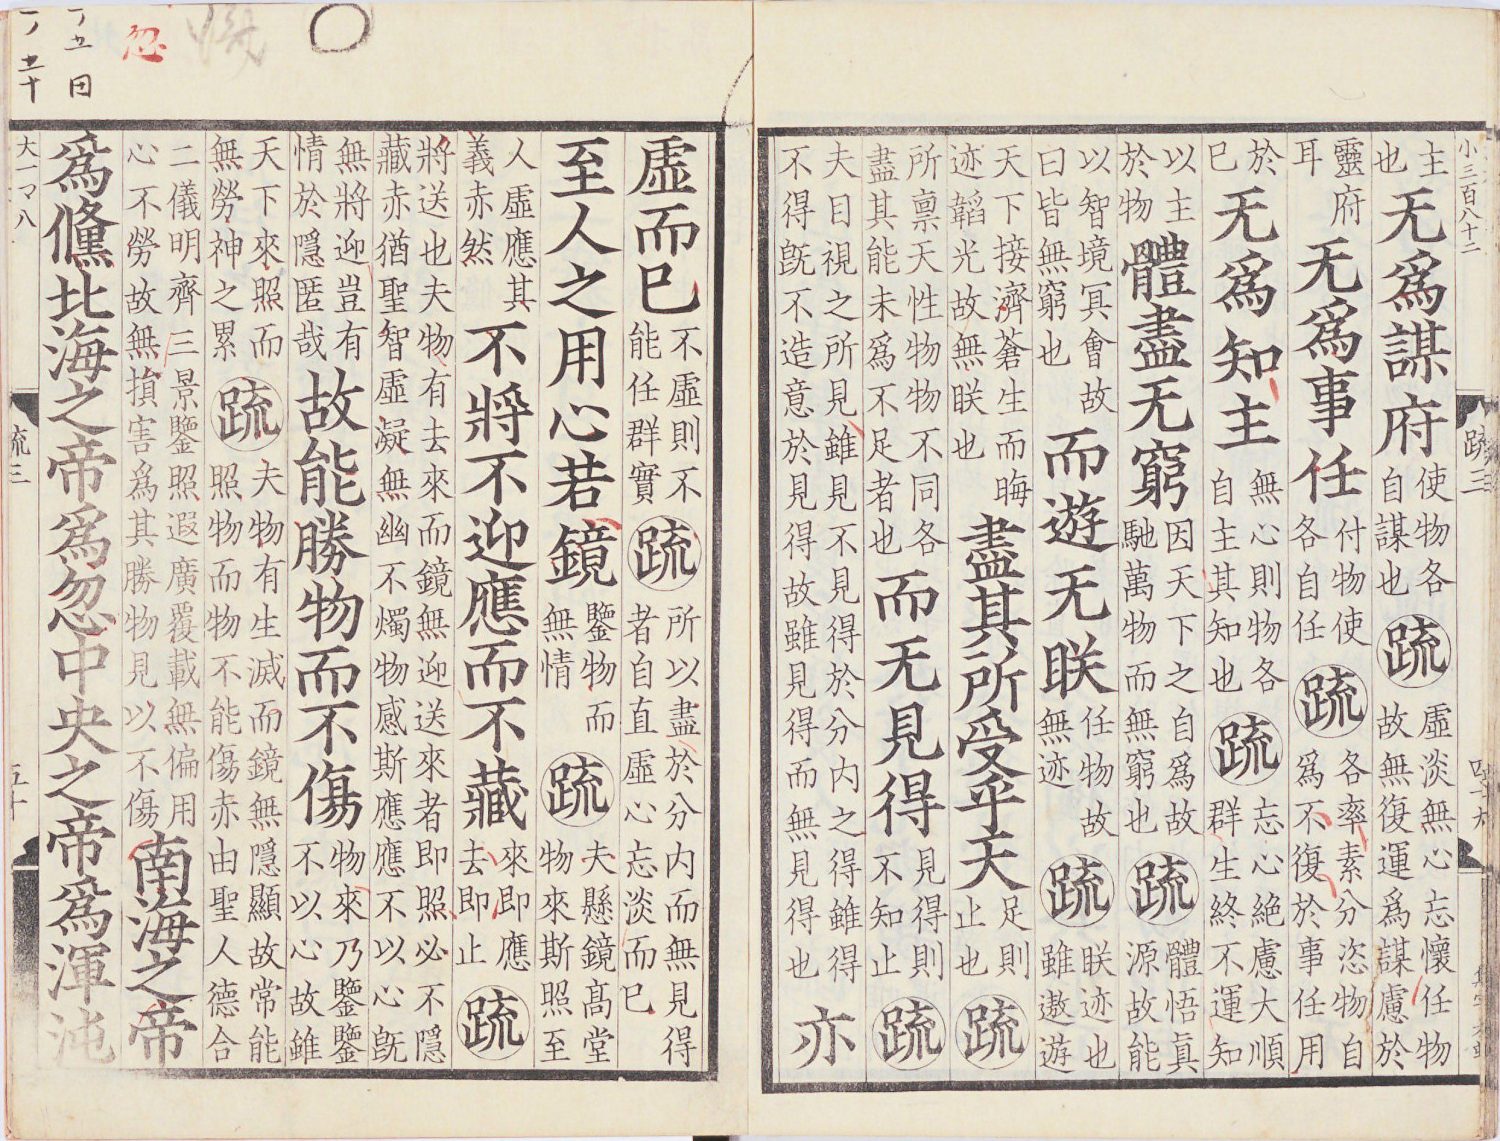 小三百八十二
疏三
主也无爲謀府使物各自謀也疏虛淡無心忘懷任物故無復運爲謀慮於
靈府耳无爲事任付物使各自任疏各率素分恣物自爲不復於事任用
於巳无爲知主無心則物各自主其知也疏忘心絶慮大順群生終不運知
以主於物體盡无窮因天下之自爲故馳萬物而無窮也疏體悟眞源故能
以智境冥會故曰皆無窮也而遊无朕任物故無迹疏朕迹也雖遨遊
天下接濟蒼生而晦迹韜光故無朕也盡其所受乎天足則止也疏
所禀天性物物不同各盡其能未爲不足者也而无見得見得則不知止疏
夫目視之所見雖見不見得於分内之得雖得不得旣不造意於見得故雖見得而無見得也亦
虛而巳不虛則不能任群實疏所以盡於分内而無見得者自直虛心忘淡而巳
至人之用心若鏡鑒物而無情疏夫懸鏡高堂物來斯照至
人虛應其義亦然不將不迎應而不藏來即應去即止疏
將送也夫物有去來而鏡無迎送來者即照必不隱藏亦猶聖智虛凝無幽不燭物感斯應應不以心旣
無將迎豈有情於隱匿哉故能勝物而不傷物來乃鑒鑒不以心故雖
天下來照而無勞神之累疏夫物有生滅而鏡無隱顯故常能照物而物不能傷亦由聖人德合
二儀明齊三景鑒照遐廣覆載無偏用心不勞故無損害爲其勝物見以不傷南海之帝
爲儵北海之帝爲忽中央之帝爲渾沌
大一マ八
疏三
五十
忽